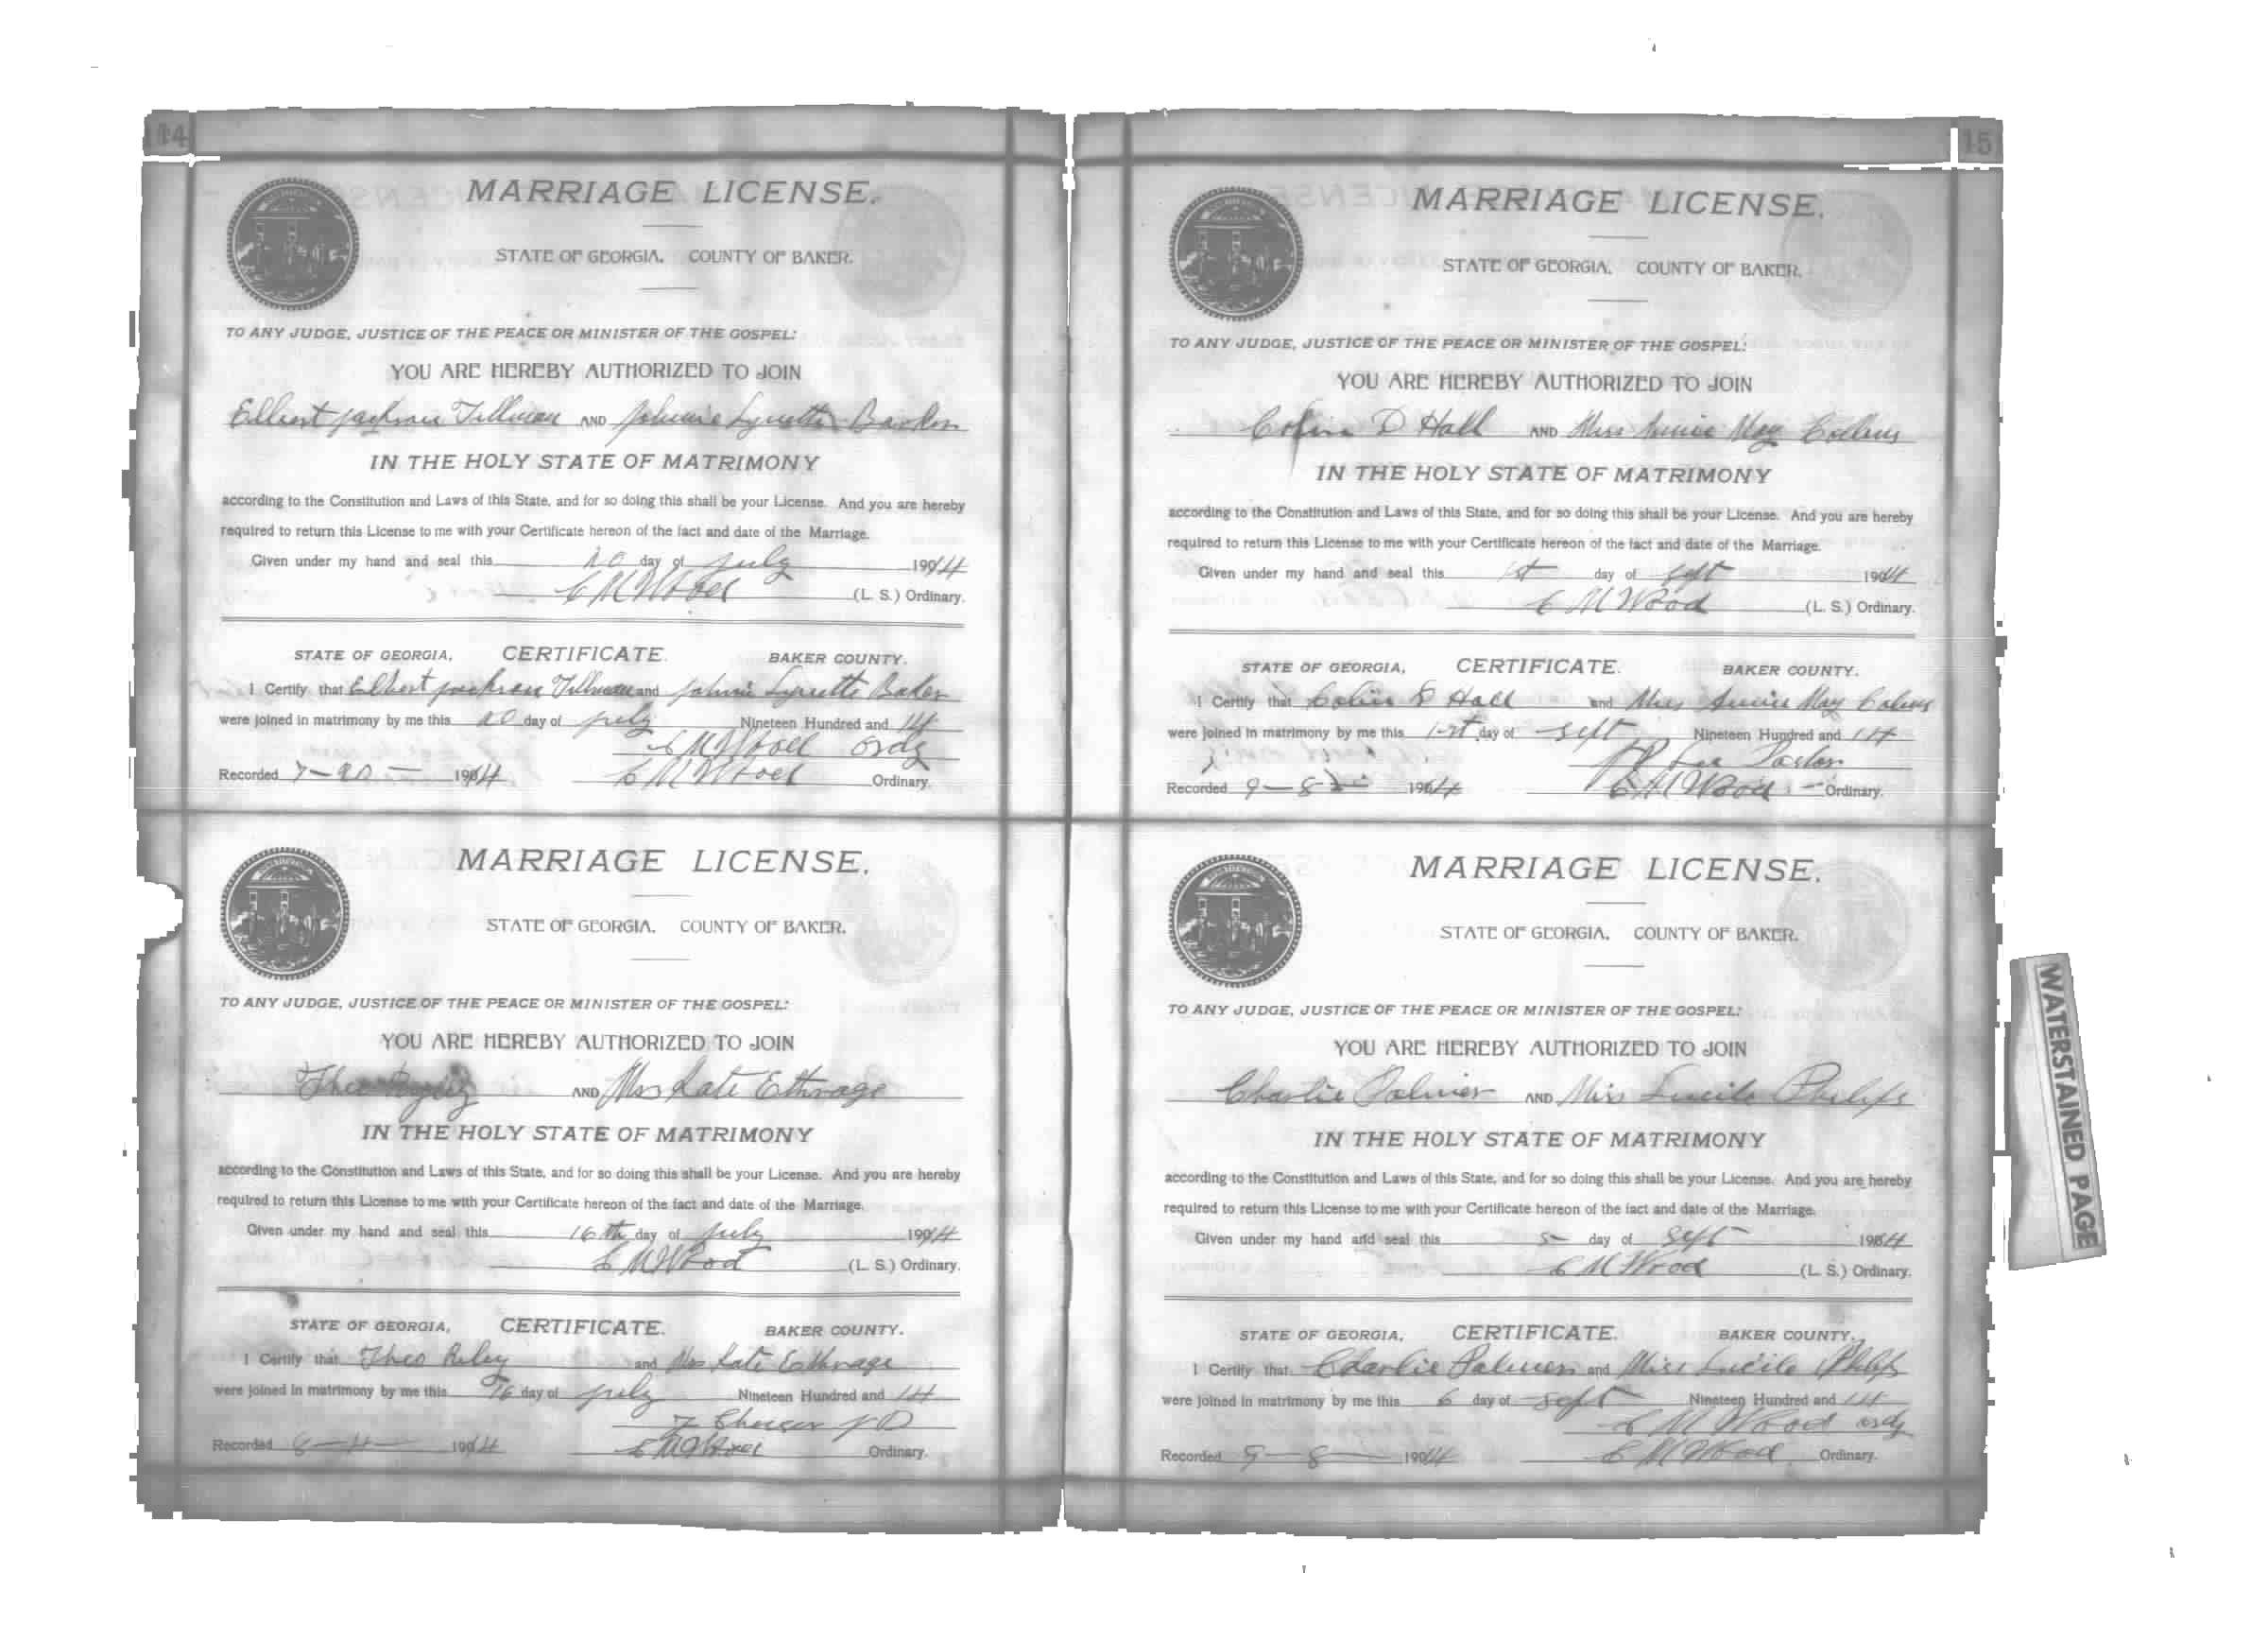 14
MARRIAGE LICENSE.
STATE OF GEORGIA. COUNTY OF BAKER.
TO ANY JUDGE, JUSTICE OF THE PEACE OR MINISTER OF THE GOSPEL:
YOU ARE HEREBY AUTHORIZED TO JOIN
Elbert Jackson Tillman AND Johnnie Lynette
IN THE HOLY STATE OF MATRIMONY
according to the Constitution and Laws of this State, and for so doing this shall be your License. And you are hereby
required to return this License to me with your Certificate hereon of the fact and date of the Marriage.
Given under my hand and seal this day of July 1914
C M Wood (L. S.) Ordinary.
STATE OF GEORGIA, CERTIFICATE. BAKER COUNTY.
I Certify that Elbert Jackson Tillman and Johnie Lynette Baker
were joined in matrimony by me this 20 day of July Nineteen Hundred and 14
C M Wood Ordy
Recorded 7-20- 1914 C M Wood Ordinary.
MARRIAGE LICENSE.
STATE OF GEORGIA. COUNTY OF BAKER.
TO ANY JUDGE, JUSTICE OF THE PEACE OR MINISTER OF THE GOSPEL:
YOU ARE HEREBY AUTHORIZED TO JOIN
Theo AND Mrs Kate Ethrage
IN THE HOLY STATE OF MATRIMONY
according to the Constitution and Laws of this State, and for so doing this shall be your License. And you are hereby
required to return this License to me with your Certificate hereon of the fact and date of the Marriage.
Given under my hand and seal this 16th day of July 1914
C M Wood (L. S.) Ordinary.
STATE OF GEORGIA, CERTIFICATE. BAKER COUNTY.
I Certify that Theo Riley and Mrs Kate Ethrage
were joined in matrimony by me this 16 day of July Nineteen Hundred and 14
Recorded 8-4- 1914 C M Wood Ordinary.
15
MARRIAGE LICENSE.
STATE OF GEORGIA. COUNTY OF BAKER.
TO ANY JUDGE, JUSTICE OF THE PEACE OR MINISTER OF THE GOSPEL:
YOU ARE HEREBY AUTHORIZED TO JOIN
Colin D Hall AND Miss Annie May Collins
IN THE HOLY STATE OF MATRIMONY
according to the Constitution and Laws of this State, and for so doing this shall be your License. And you are hereby
required to return this License to me with your Certificate hereon of the fact and date of the Marriage.
Given under my hand and seal this 1st day of Sept 1914
C M Wood (L. S.) Ordinary.
STATE OF GEORGIA, CERTIFICATE. BAKER COUNTY.
I Certify that Colin D Hall and Miss Annie May Colins
were joined in matrimony by me this 1st day of Sept Nineteen Hundred and 14
Recorded 9-8 1914 C M Wood Ordinary.
MARRIAGE LICENSE.
STATE OF GEORGIA. COUNTY OF BAKER.
TO ANY JUDGE, JUSTICE OF THE PEACE OR MINISTER OF THE GOSPEL:
YOU ARE HEREBY AUTHORIZED TO JOIN
Charlie Palmer AND Miss Lucile Philips
IN THE HOLY STATE OF MATRIMONY
according to the Constitution and Laws of this State, and for so doing this shall be your License. And you are hereby
required to return this License to me with your Certificate hereon of the fact and date of the Marriage.
Given under my hand and seal this 5 day of Sept 1914
C M Wood (L. S.) Ordinary.
STATE OF GEORGIA, CERTIFICATE. BAKER COUNTY.
I Certify that Charlie Palmer and Miss Lucile Philips
were joined in matrimony by me this 6 day of Sept Nineteen Hundred and 14
C M Wood ordy
Recorded 9-8- 1914 C M Wood Ordinary.
WATERSTAINED PAGE